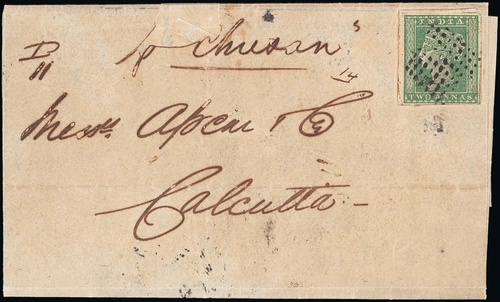 p Chusan
INDIA
TWO ANNAS
14
Messrs Apcar & Co
Calcutta